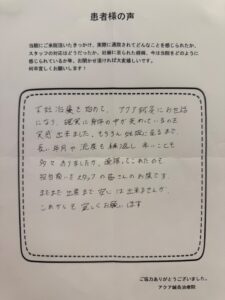 患者様の声
当院にご来院頂いたきっかけ、実際に通院されてどんなことを感じられたか、
スタッフの対応はどうだったか、妊娠に至られた感想、今は当院をどのように
感じられているか等、お聞かせ頂ければ大変嬉しいです。
何卒宜しくお願いします!
不妊治療を始めて、アクア鍼灸にお世話
になり、確実に身体の中が変わっているのを
実感出来ました。もちろん妊娠に至るまで、
長い年月や流産も繰返し辛いことも
多々ありましたが、頑張ってこれたのも
担当頂いたスタッフの皆さんのお陰です。
まだまだ出産まで安心は出来ませんが、
これからも宜しくお願い致します
ご協力ありがとうございました。
アクア鍼灸治療院